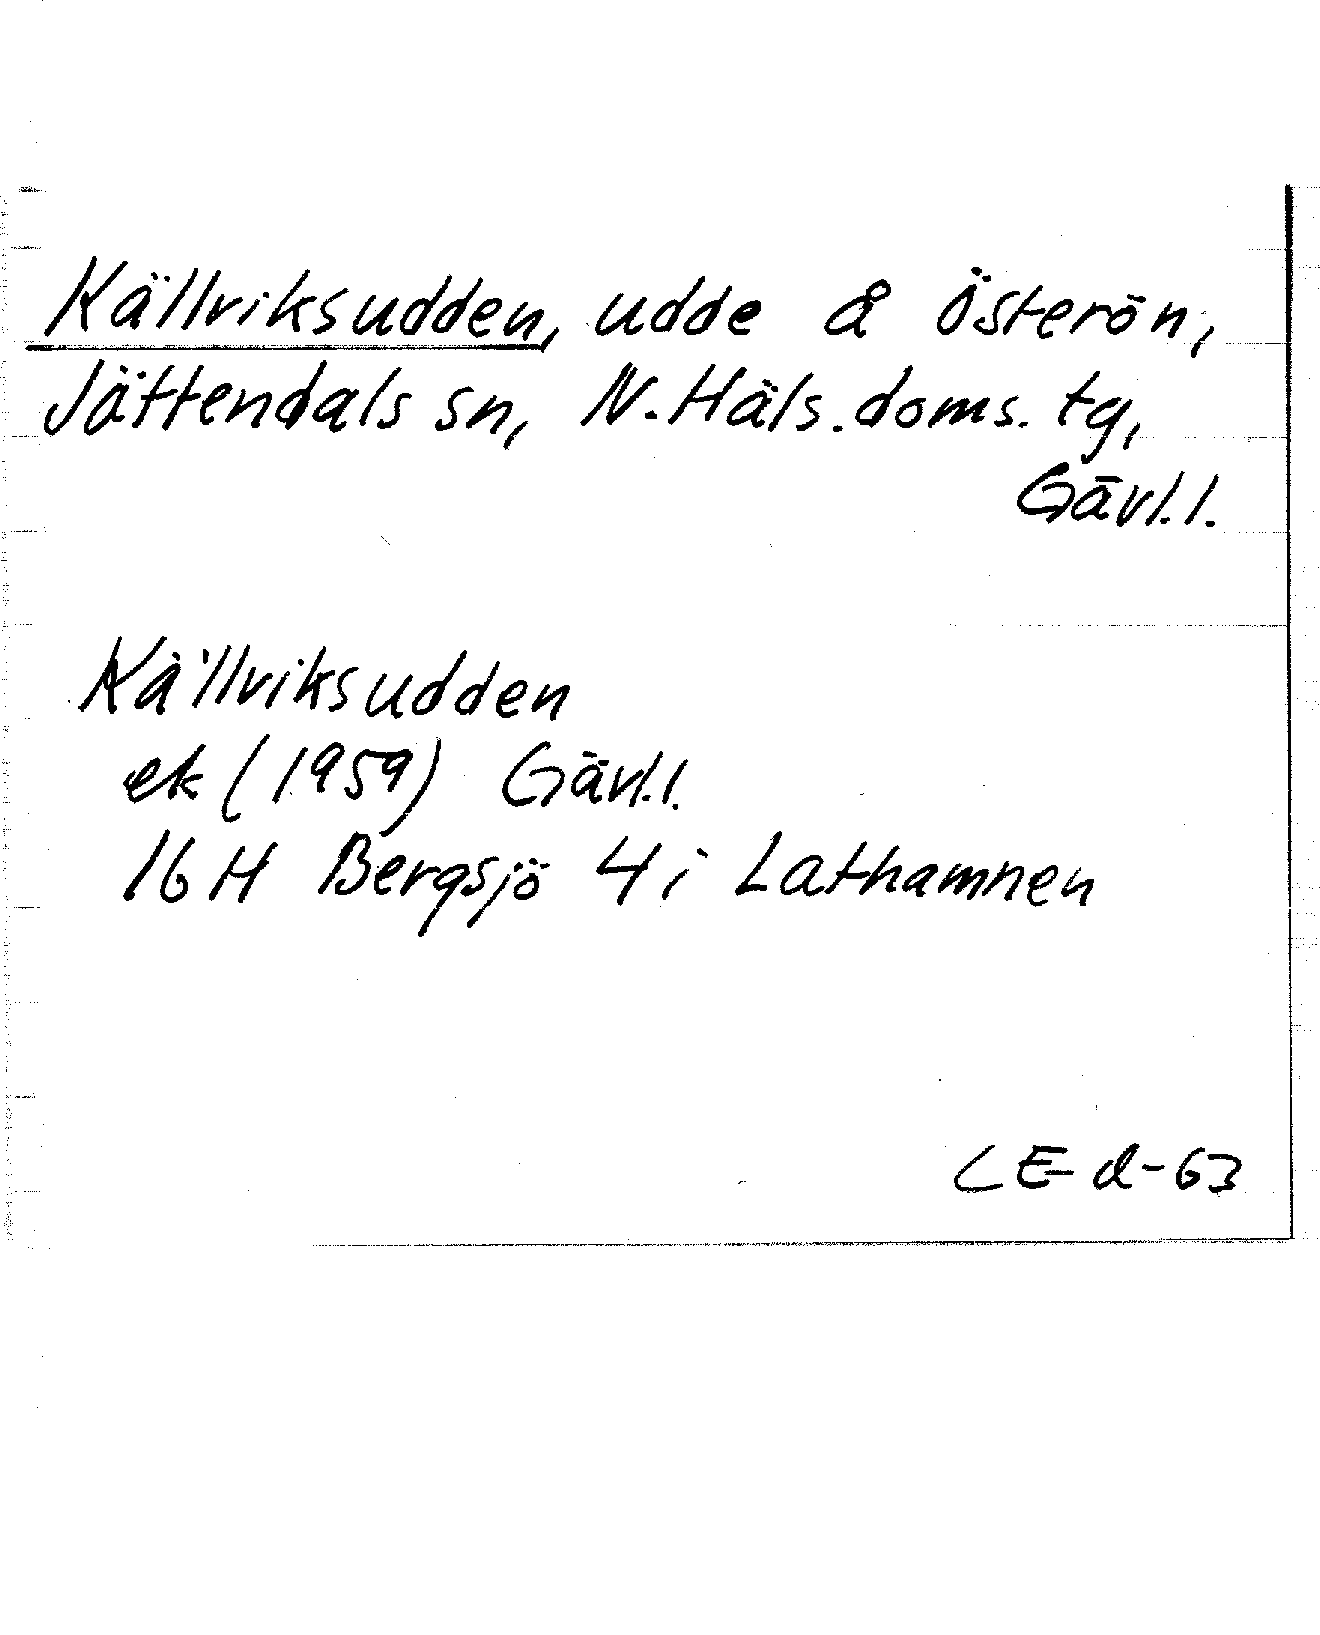 Källviksudden, udde å Österön,
Jättendals sn, N. Häls. doms. tg,
Gävl.l.
Källviksudden
ek (1959) Gävl.l.
16 H Bergsjö 4 i Lathamnen
CE d-63